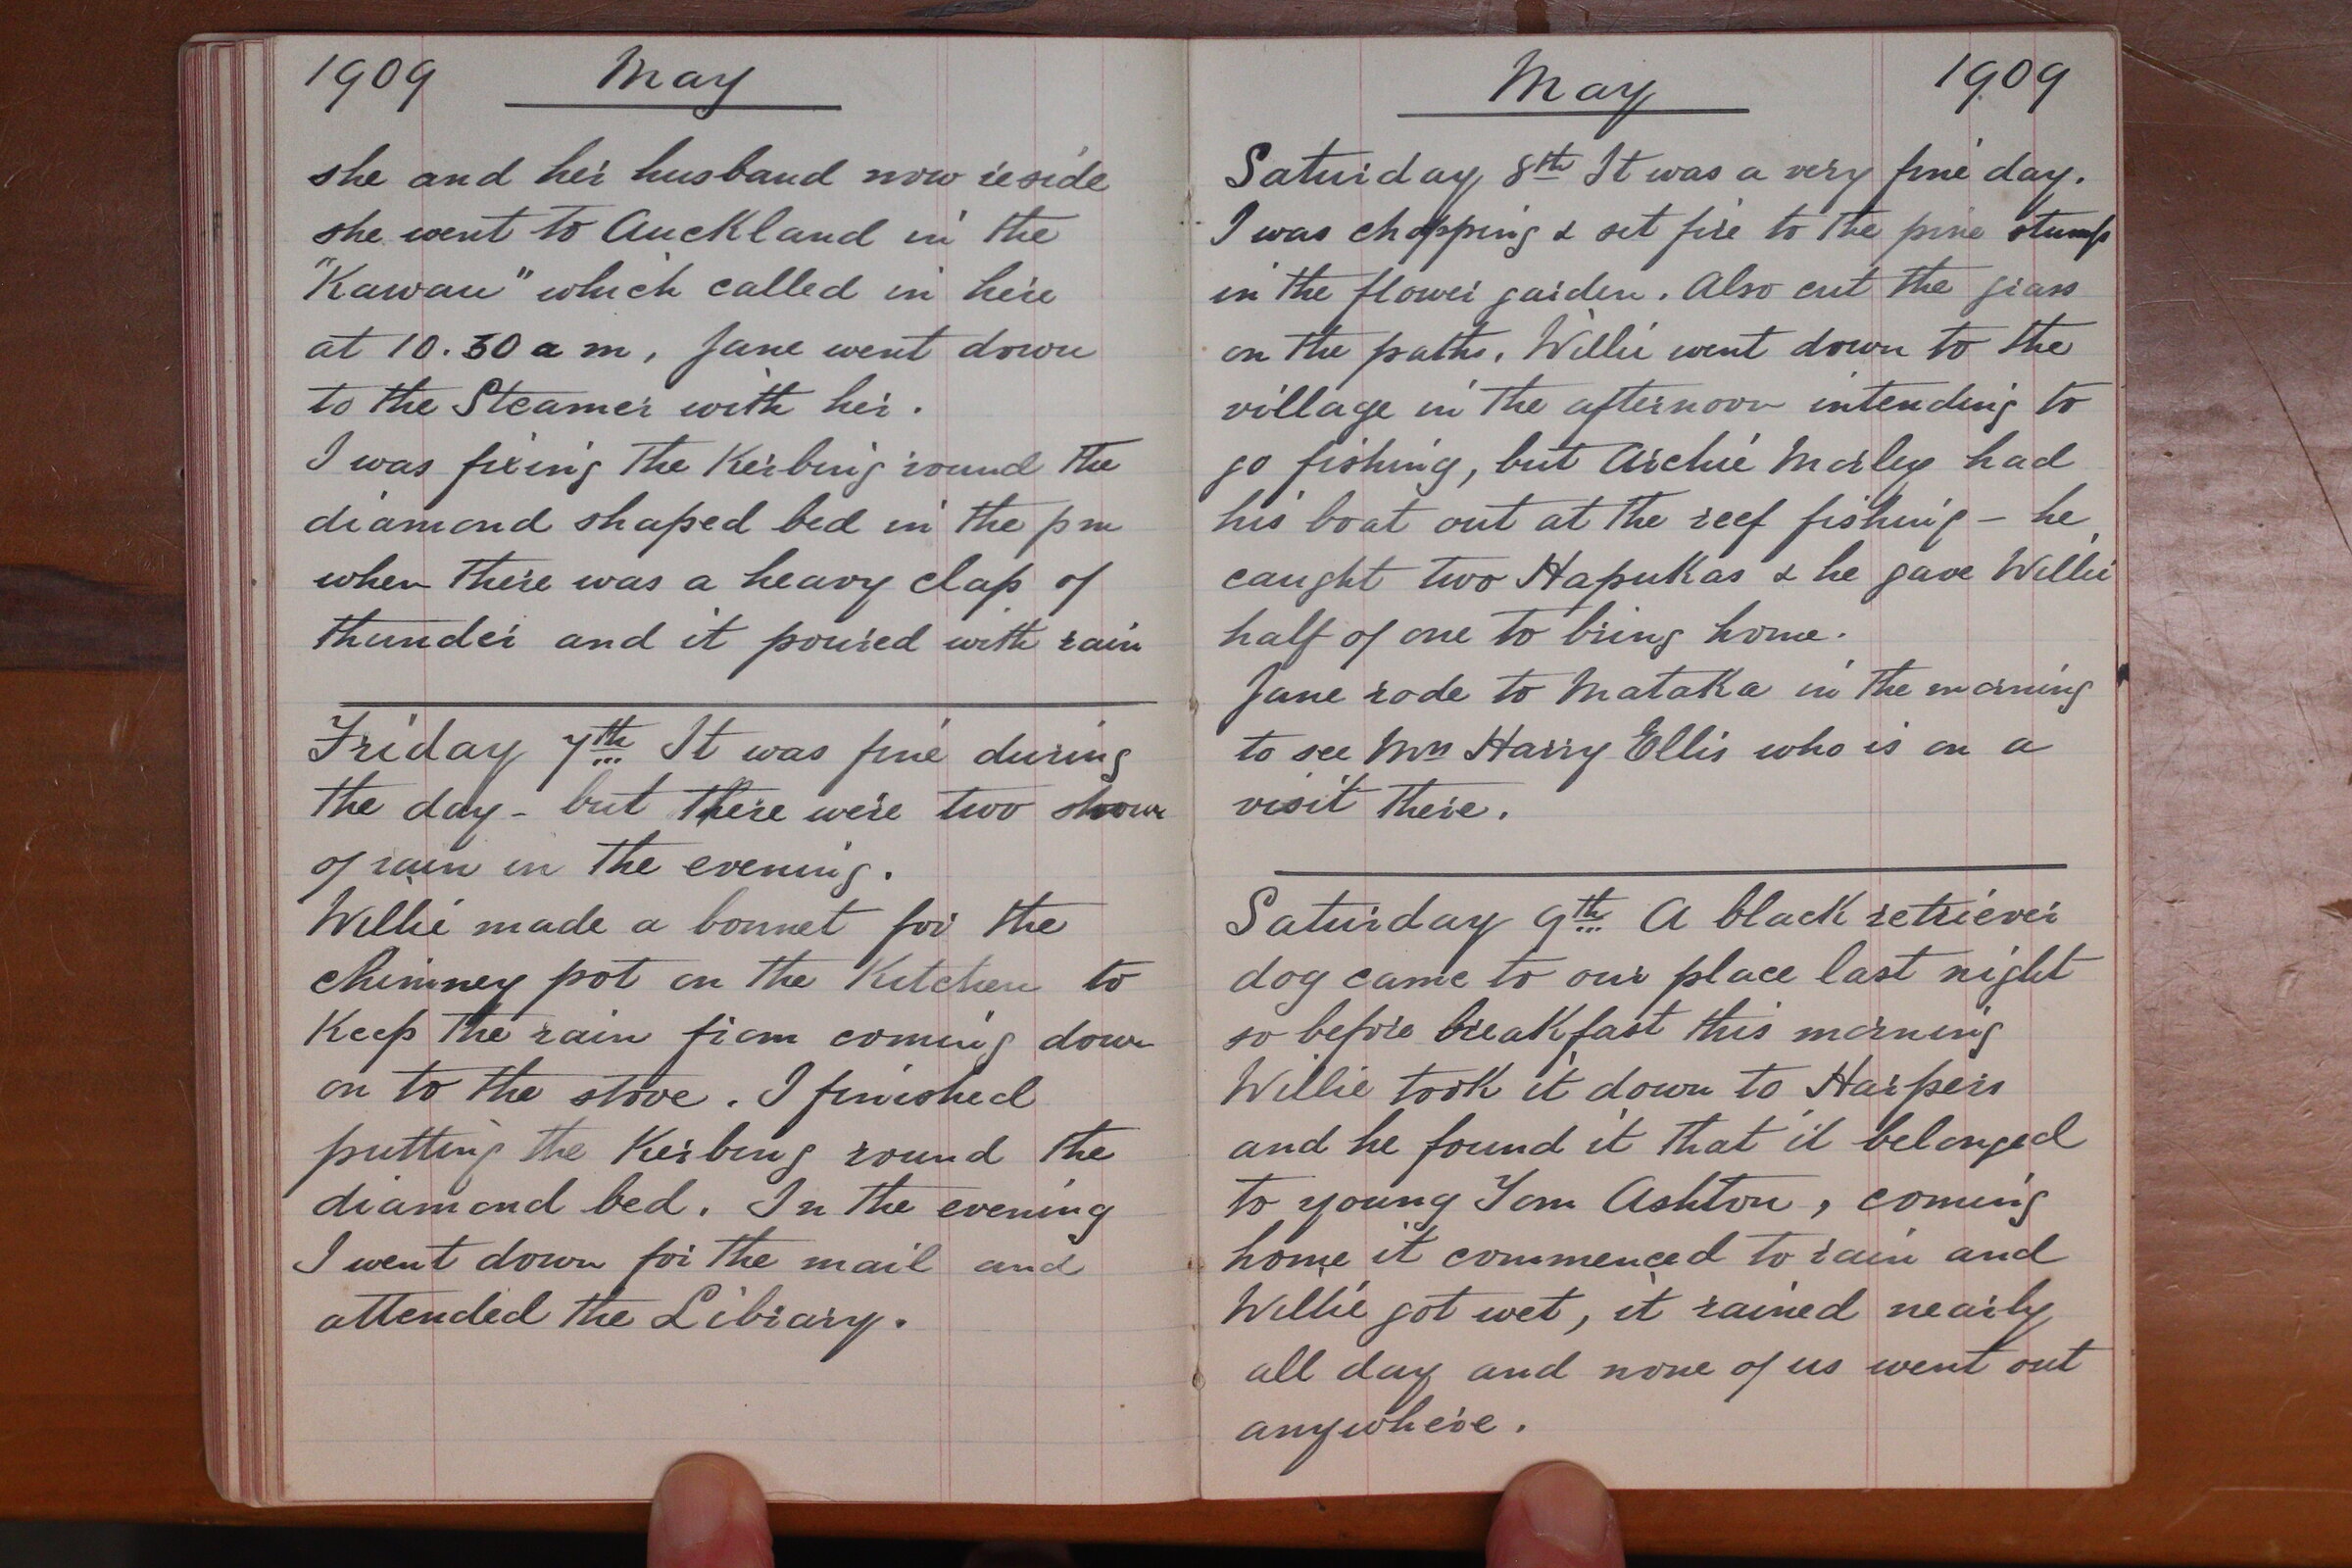 1909 May
she and her husband now reside
she went to Auckland in the
"Kawau" which called in here
at 10.30 a m, Jane went down
to the Steamer with her.
I was fixing the Kerbing round the
diamond shaped bed in the pm
when there was a heavy clap of
thunder and it poured with rain
Friday 7th It was fine during
the day - but there were two show
of rain in the evening.
Willie made a bonnet for the
chimney pot on the Kitchen to
Keep the rain from coming down
on to the stove. I finished
putting the Kerbing round the
diamond bed. In the evening
I went down for the mail and
attended the Library.
May 1909
Saturday 8th It was a very fine day.
I was chopping & set fire to the pine stump
in the flower garden. Also cut the grass
on the paths. Willie went down to the
village in the afternoon intending to
go fishing, but Archie Morley had
his boat out at the reef fishing - he
caught two Hapukas & he gave Willie
half of one to bring home.
Jane rode to Mataka in the morning
to see Mrs Harry Ellis who is on a
visit there.
Saturday 9th A black retriever
dog came to our place last night
so before breakfast this morning
Willie took it down to Harpers
and he found it that it belonged
to young Tom Ashton, coming
home it commenced to rain and
Willie got wet, it rained nearly
all day and none of us went out
anywhere.